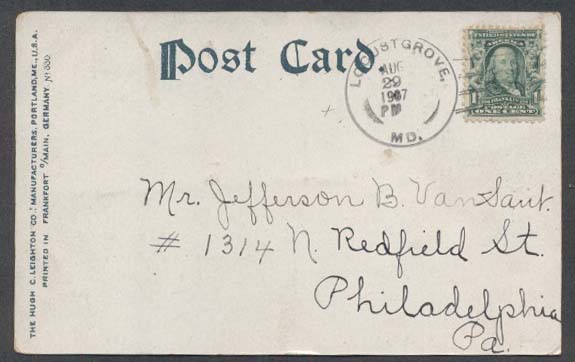 Post Card.
LOCUSTGROVE,
AUG
29
1907
PM
MD.
UNITED STATES OF
AMERICA
FRANKLIN
POSTAGE
ONE CENT
Mr. Jefferson B. VanSant.
# 1314 N. Redfield St.
Philadelphia
Pa.
THE HUGH C. LEIGHTON CO., MANUFACTURERS, PORTLAND, ME., U.S.A.
PRINTED IN FRANKFORT o/MAIN, GERMANY.